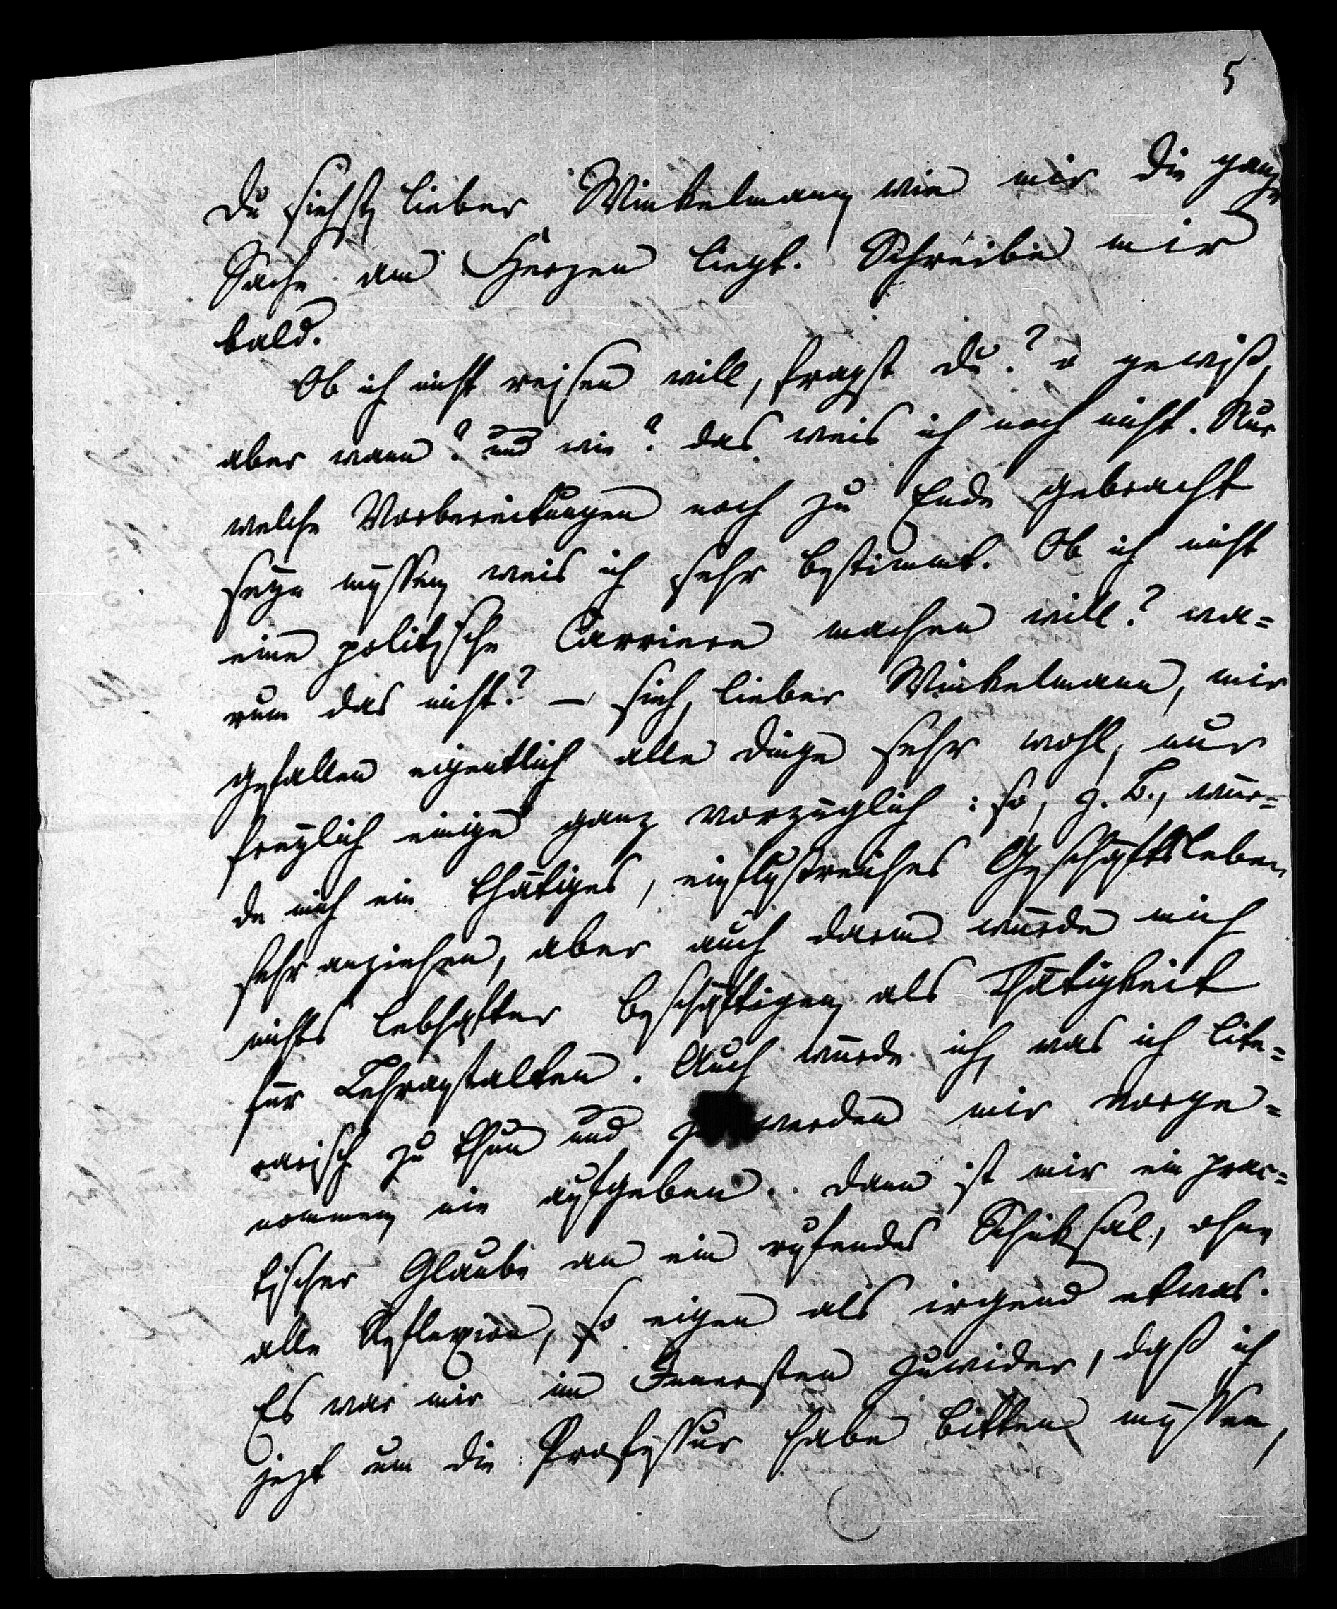 5
Du siehst, lieber Winkelmann, wie mir die ganze
Sache am Herzen liegt. Schreibe mir
bald.
Ob ich nicht reisen will, fragst du? o gewiß,
aber wann? und wie? das weis ich noch nicht. Nur
welche Vorbereitungen noch zu Ende gebracht
seyn müssen, weis ich sehr bestimmt. Ob ich nicht
eine politische Carriere machen will? wa=
rum das nicht? – sieh, lieber Winkelmann, mir
gefallen eigentlich alle Dinge sehr wohl, nur
freylich einige ganz vorzüglich: so, z. B., wür=
de mich ein thätiges, einflußreiches Geschäftsleben
sehr anziehen, aber auch darin würde mich
nichts lebhafter beschäftigen, als Thätigkeit
für Lehranstalten. Auch würde ich, was ich lite=
rarisch zu thun und zu werden mir vorge=
nommen, nie aufgeben. Dann ist mir ein prac=
tischer Glaube an ein rufendes Schiksal, ohne
alle Reflexion, so eigen als irgend etwas.
Es war mir im Innersten zuwider, daß ich
jezt um die Professur habe bitten müssen,